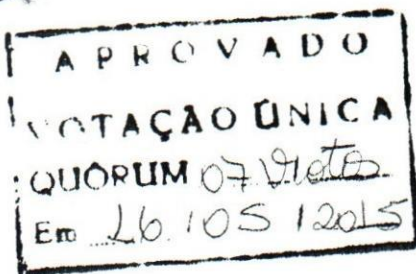 APROVADO
VOTAÇÃO ÚNICA
QUÓRUM 07 Votos
Em 26/05/2015